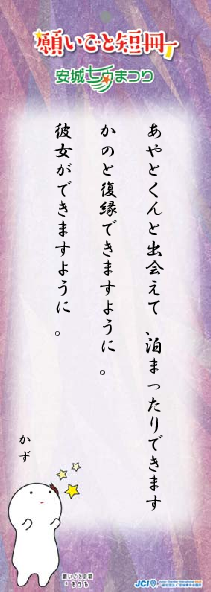 願いごと短冊
安城七夕まつり
あやとくんと出会えて、泊まったりできます
かのと復縁できますように。
彼女ができますように。
かず
JCI